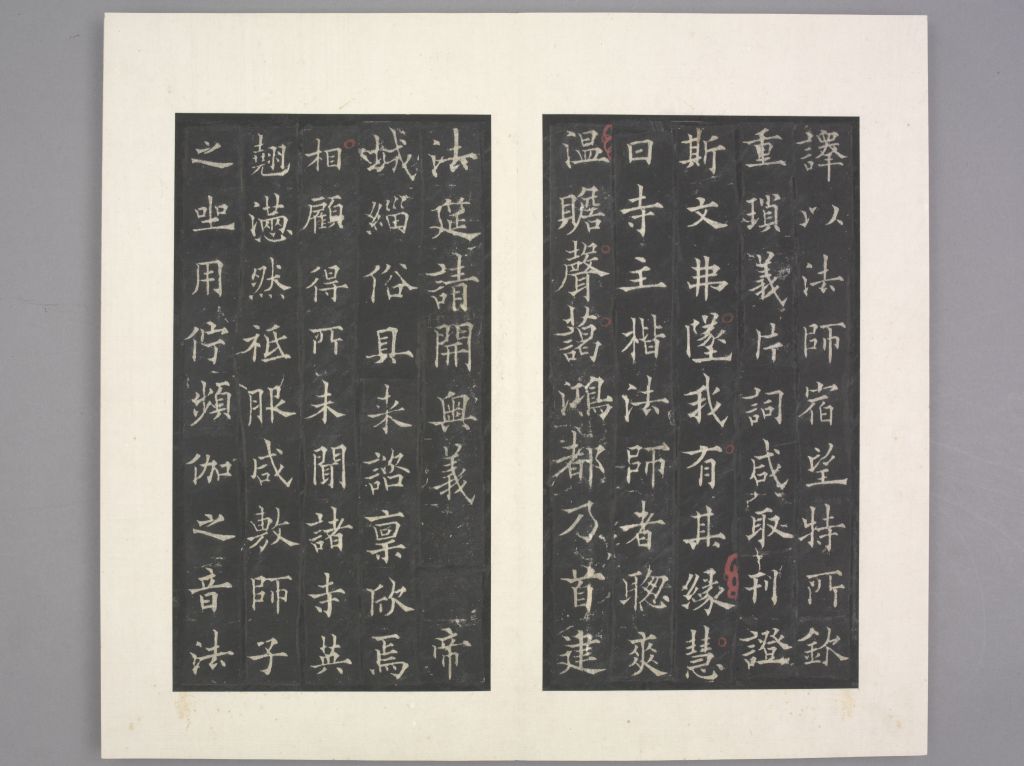 譯以法師宿望特所欽
重瑣義片詞咸取刊證
斯文弗墜我有其緣慧
日寺主楷法師者聰爽
温贍聲藹鴻都乃首建
法筵請開奧義 帝
城緇俗具来諮禀欣焉
相顧得所未聞諸寺英
翹懣然祗服咸敷師子
之坐用佇頻伽之音法